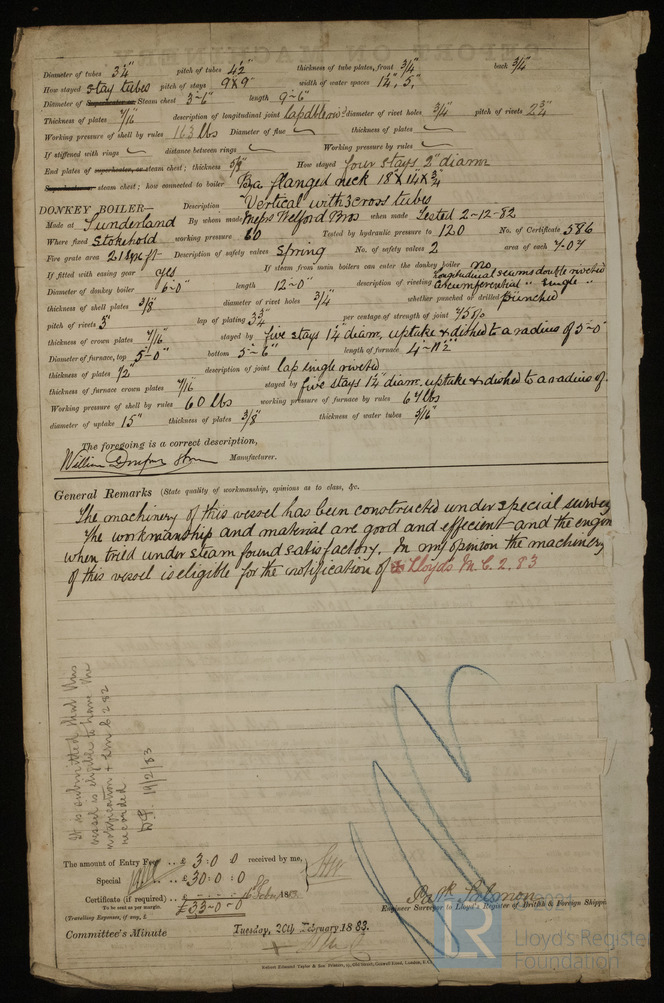 Diameter of tubes 3¼" pitch of tubes 4½" thickness of tube plates, front ¾" back ¾"
How stayed stay tubes pitch of stays 9x9" width of water spaces 1¼", 5"
Diameter of Superheater or Steam chest 3-6" length 9-6"
Thickness of plates 7/16 description of longitudinal joint lap dble riv diameter of rivet holes ¾" pitch of rivets 2¾"
Working pressure of shell by rules 113 lbs Diameter of flue thickness of plates
If stiffened with rings distance between rings Working pressure by rules
End plates of superheater, or steam chest; thickness 5/8" How stayed four stays 2" diam
Superheater or steam chest; how connected to boiler By a flanged neck 18" x 14" x ¾"
DONKEY BOILER— Description Vertical with 3 cross tubes
Made at Sunderland By whom made Messrs Welford Bros when made Tested 2-12-82
Where fixed Stokehold working pressure 60 Tested by hydraulic pressure to 120 No. of Certificate 586
Fire grate area 21 sqre ft Description of safety valves Spring No. of safety valves 2 area of each 7.07
If fitted with easing gear yes If steam from main boilers can enter the donkey boiler no
Longitudinal seams double riveted
Diameter of donkey boiler 6-0" length 12-0" description of riveting Circumferential " single "
thickness of shell plates 3/8" diameter of rivet holes ¾" whether punched or drilled Punched
pitch of rivets 3" lap of plating 3¾" per centage of strength of joint 75%
thickness of crown plates 7/16" stayed by five stays 1¼ diam, uptake & dished to a radius of 5-0"
Diameter of furnace, top 5-0" bottom 5-6" length of furnace 4-11½"
thickness of plates ½" description of joint lap single riveted
thickness of furnace crown plates 7/16 stayed by five stays 1¼ diam. uptake & dished to a radius of
Working pressure of shell by rules 60 lbs working pressure of furnace by rules 64 lbs
diameter of uptake 15" thickness of plates 3/8" thickness of water tubes 5/16"
The foregoing is a correct description,
William Manufacturer.
General Remarks (State quality of workmanship, opinions as to class, &c.
The machinery of this vessel has been constructed under special survey
The workmanship and material are good and effecient and the engin
when tried under steam found satisfactory. In my opinion the machinery
of this vessel is eligible for the notification of Lloyds M.C. 2.83
It is submitted that this
vessel is eligible to have the
notification + LMC 2 82
recorded
19/2/83
The amount of Entry Fee .. £ 3 : 0 : 0 received by me,
Special .. £ 30 : 0 : 0
Certificate (if required) .. £ - - - 16 Feby 1883
To be sent as per margin. £33-0-0
(Travelling Expenses, if any, £
Park Salmon
Engineer Surveyor to Lloyd's Register of British & Foreign Shippi
Committee's Minute Tuesday, 20th February 1883.
LR
Lloyd's Register
Foundation